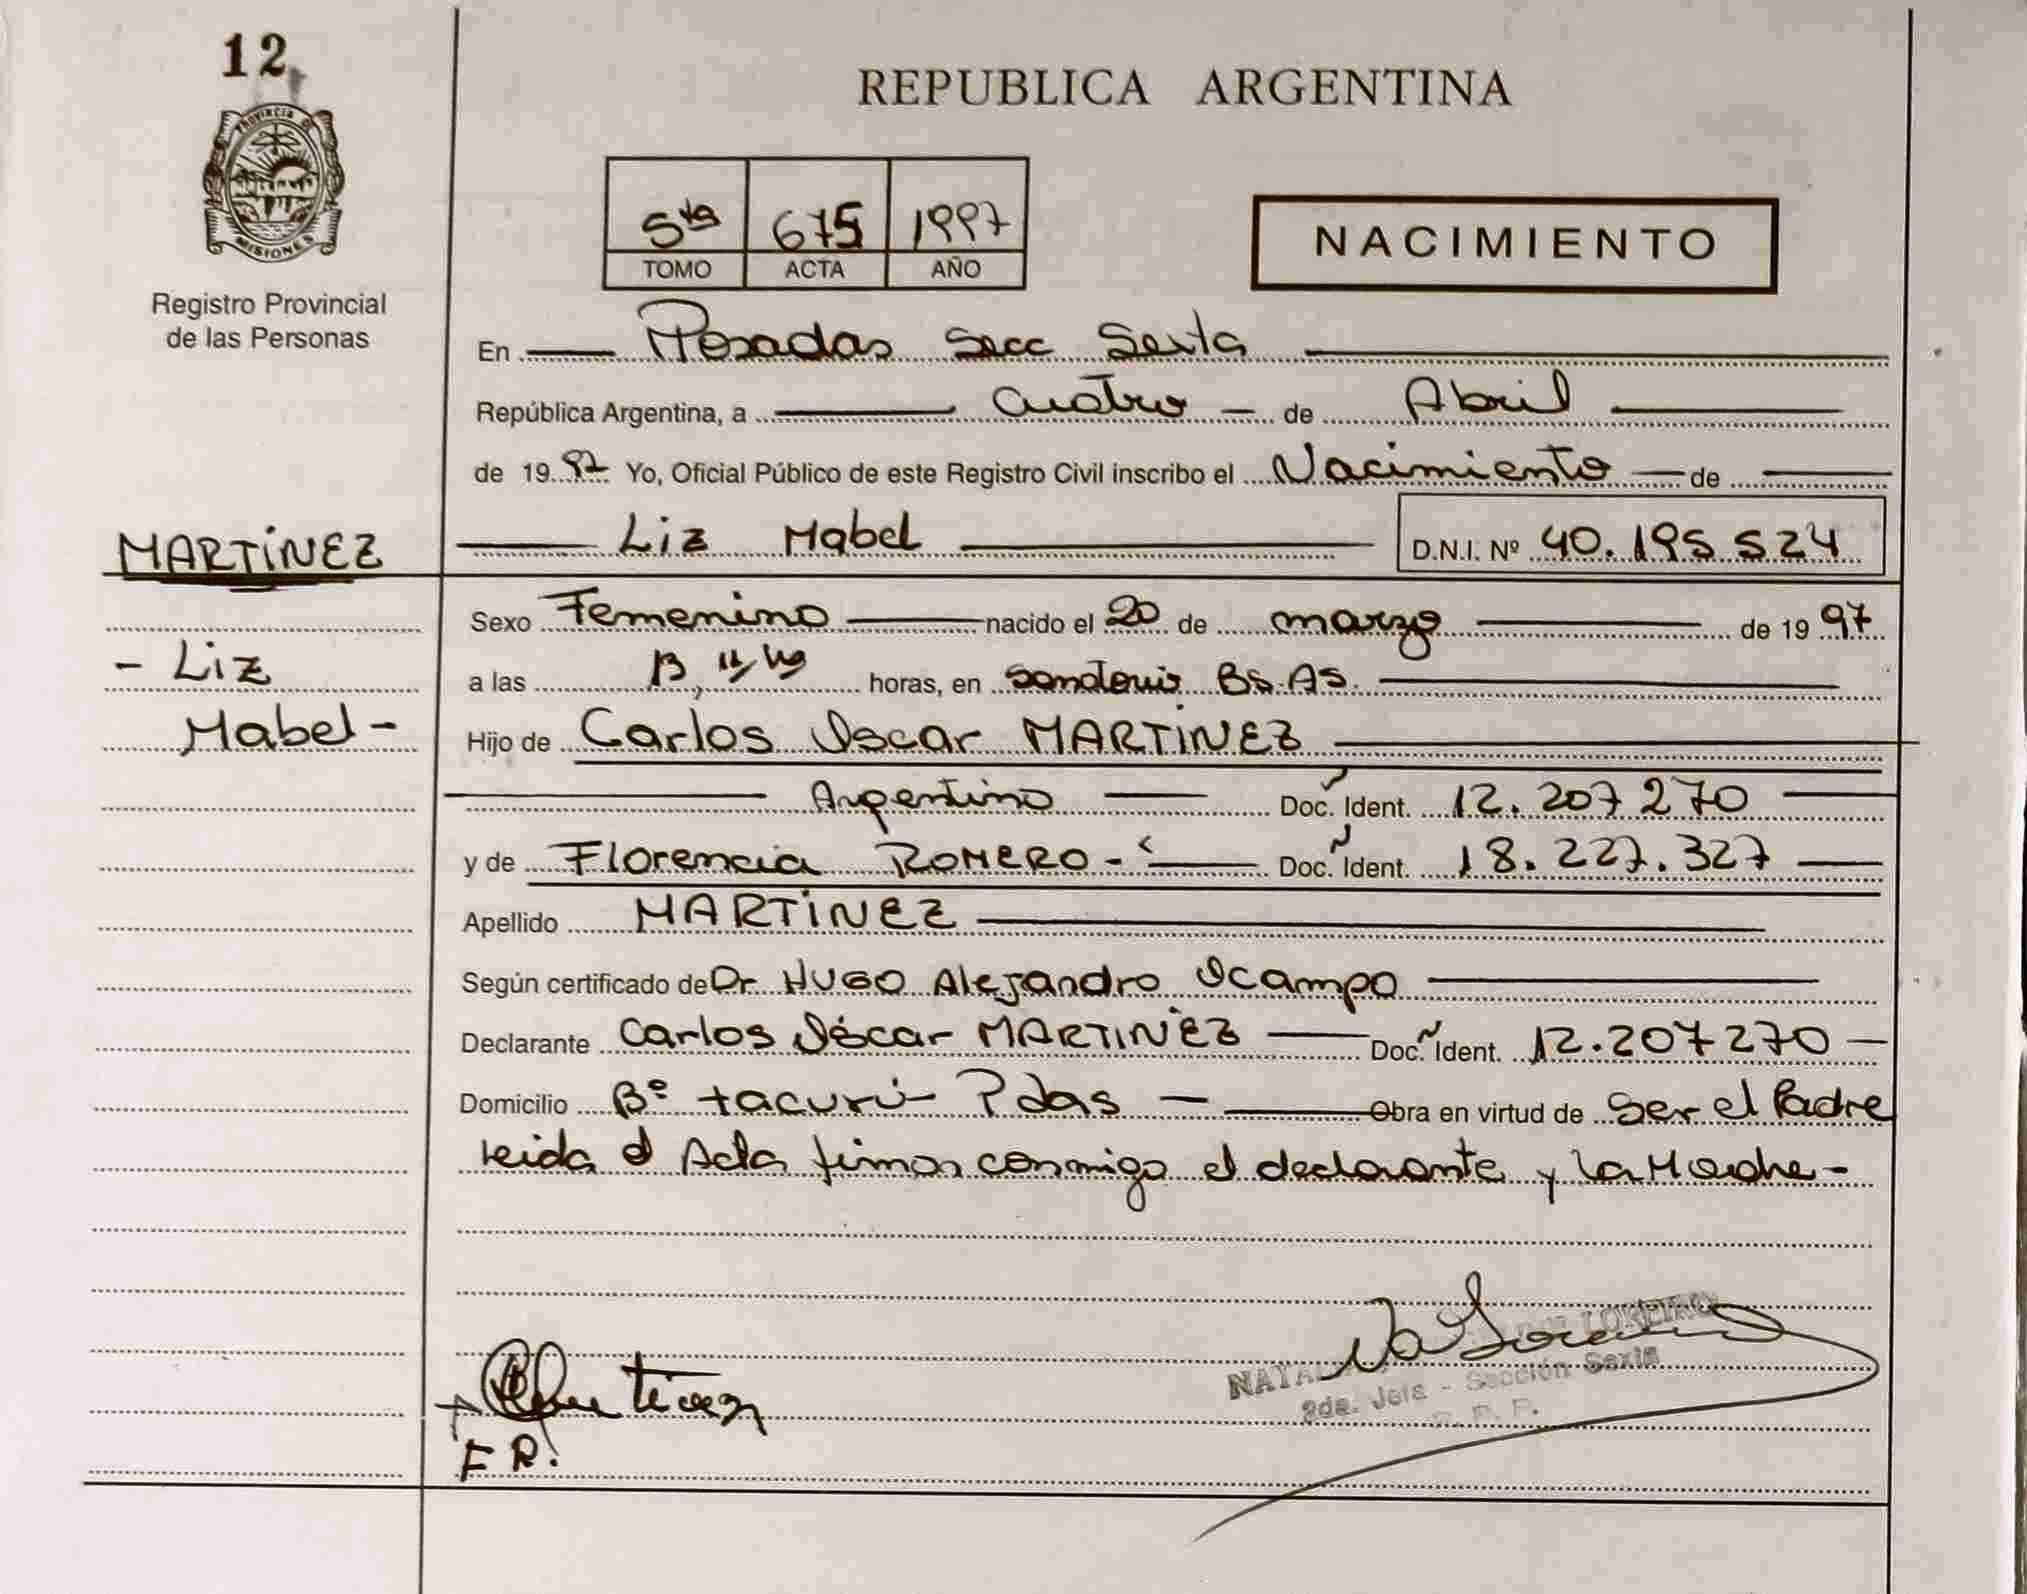 12
PROVINCIA DE
MISIONES
Registro Provincial
de las Personas
REPUBLICA ARGENTINA
5ta 675 1997
TOMO ACTA AÑO
NACIMIENTO
En Posadas Secc Sexta
República Argentina, a cuatro de Abril
de 1997 Yo, Oficial Público de este Registro Civil inscribo el Nacimiento de
MARTINEZ
Liz Mabel D.N.I. Nº 40.195.524
Sexo Femenino nacido el 20 de marzo de 1997
- Liz
a las 13, horas, en BS.AS.
Mabel -
Hijo de Carlos Oscar MARTINEZ
Argentino Doc. Ident. 12.207270
y de Florencia ROMERO - Doc. Ident. 18.227.327
Apellido MARTINEZ
Según certificado de Dr HUGO Alejandro Ocampo
Declarante Carlos Oscar MARTINEZ Doc. Ident. 12.207270
Domicilio Bº tacurú - Pdas Obra en virtud de Ser el Padre
leida el Acta firman conmigo el declarante y La Madre -
LOREIRO
2da. Jefa - Sección Sexta
R. P. P.
F R.